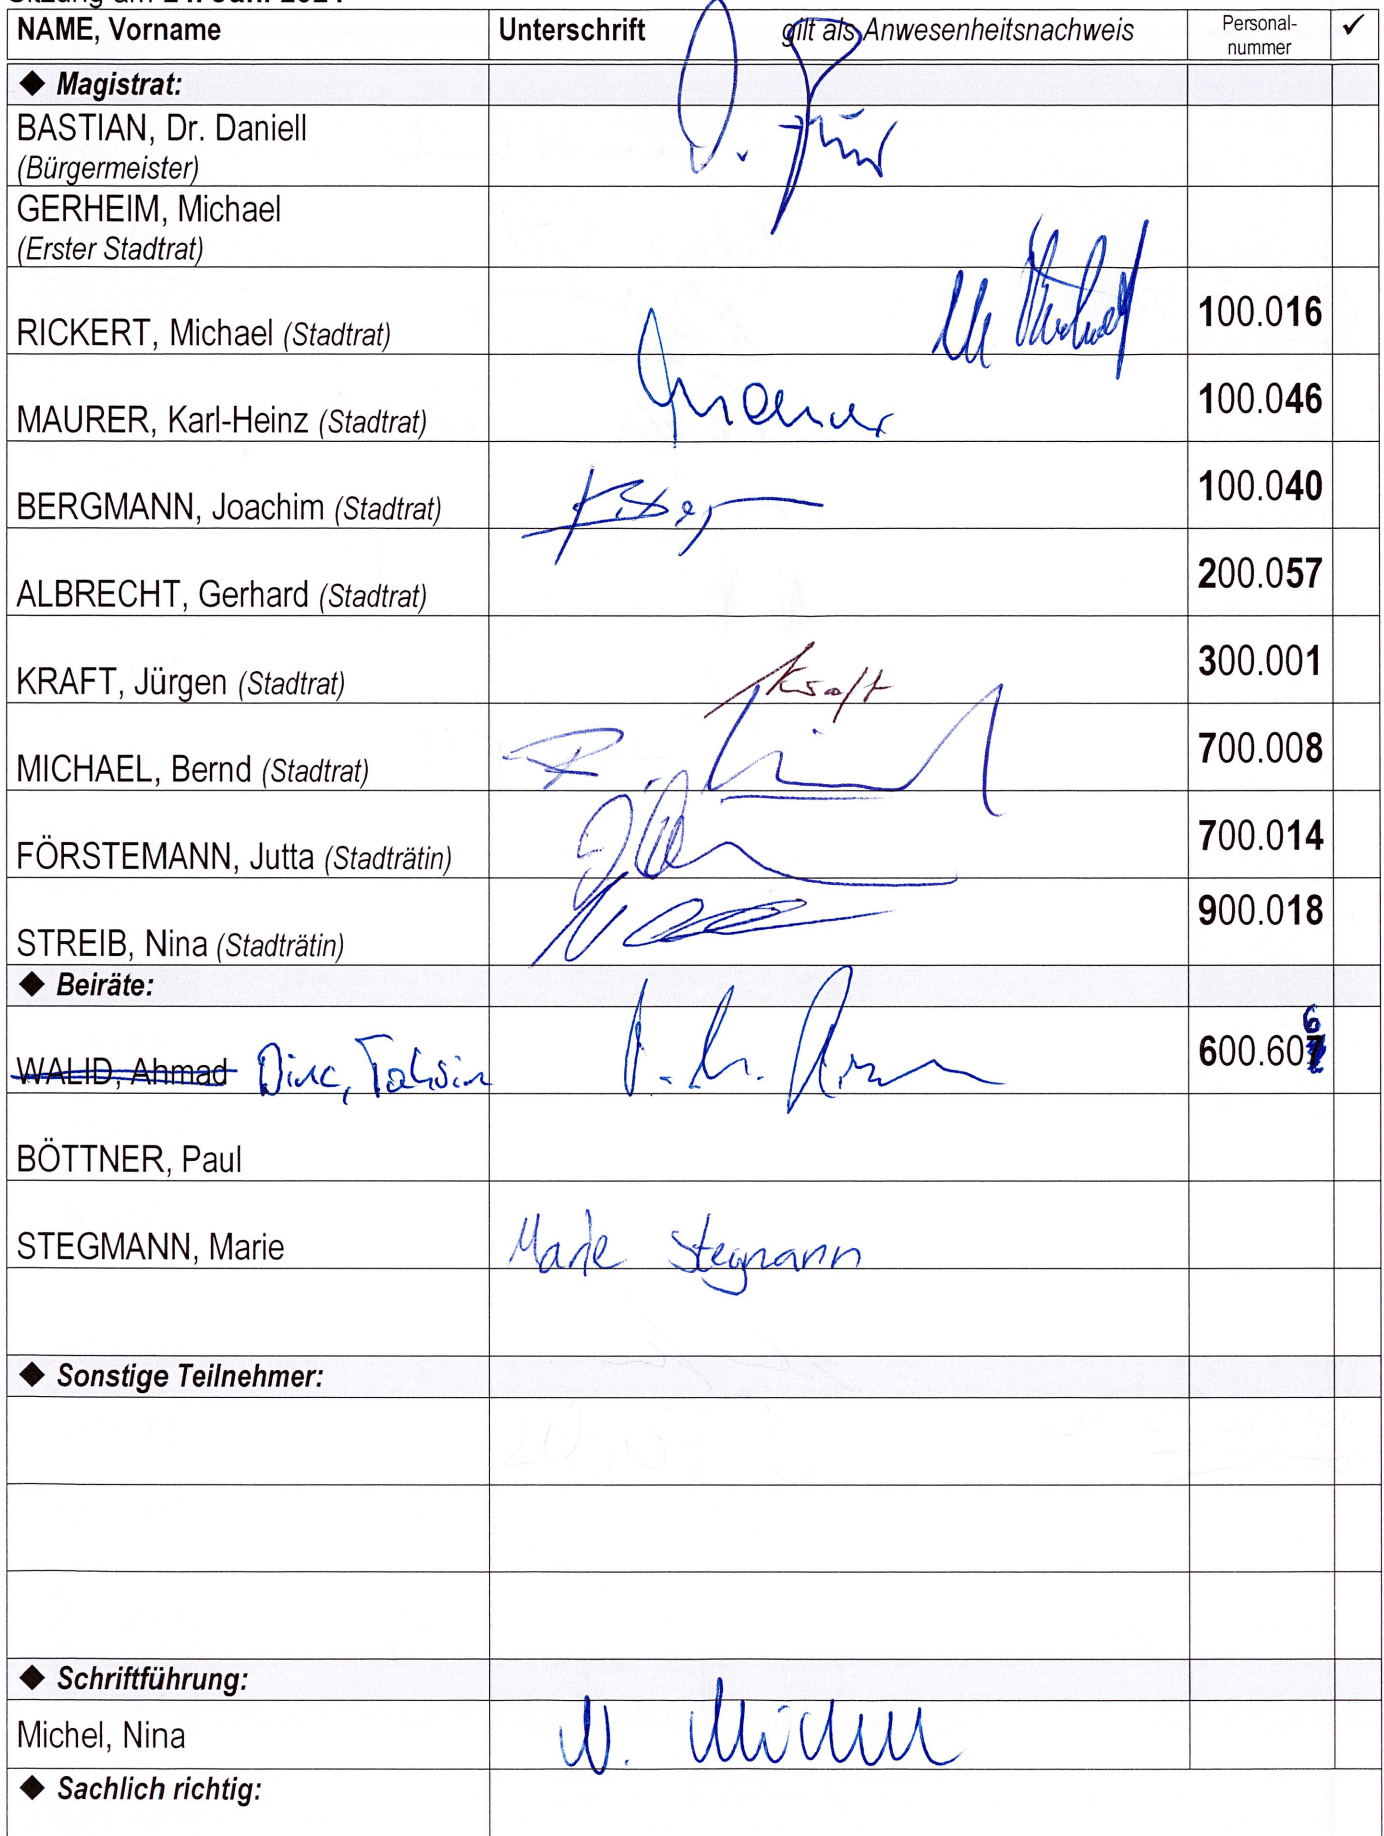 NAME, Vorname Unterschrift gilt als Anwesenheitsnachweis Personal-nummer ✓
◆ Magistrat:
BASTIAN, Dr. Daniell
(Bürgermeister)
GERHEIM, Michael
(Erster Stadtrat)
RICKERT, Michael (Stadtrat) 100.016
MAURER, Karl-Heinz (Stadtrat) Maurer 100.046
BERGMANN, Joachim (Stadtrat) 100.040
ALBRECHT, Gerhard (Stadtrat) 200.057
KRAFT, Jürgen (Stadtrat) Kraft 300.001
MICHAEL, Bernd (Stadtrat) 700.008
FÖRSTEMANN, Jutta (Stadträtin) 700.014
STREIB, Nina (Stadträtin) 900.018
◆ Beiräte:
WALID, Ahmad Dinc, Tahsin 600.606
BÖTTNER, Paul
STEGMANN, Marie Marie Stegmann
◆ Sonstige Teilnehmer:
◆ Schriftführung:
Michel, Nina N. Michel
◆ Sachlich richtig: